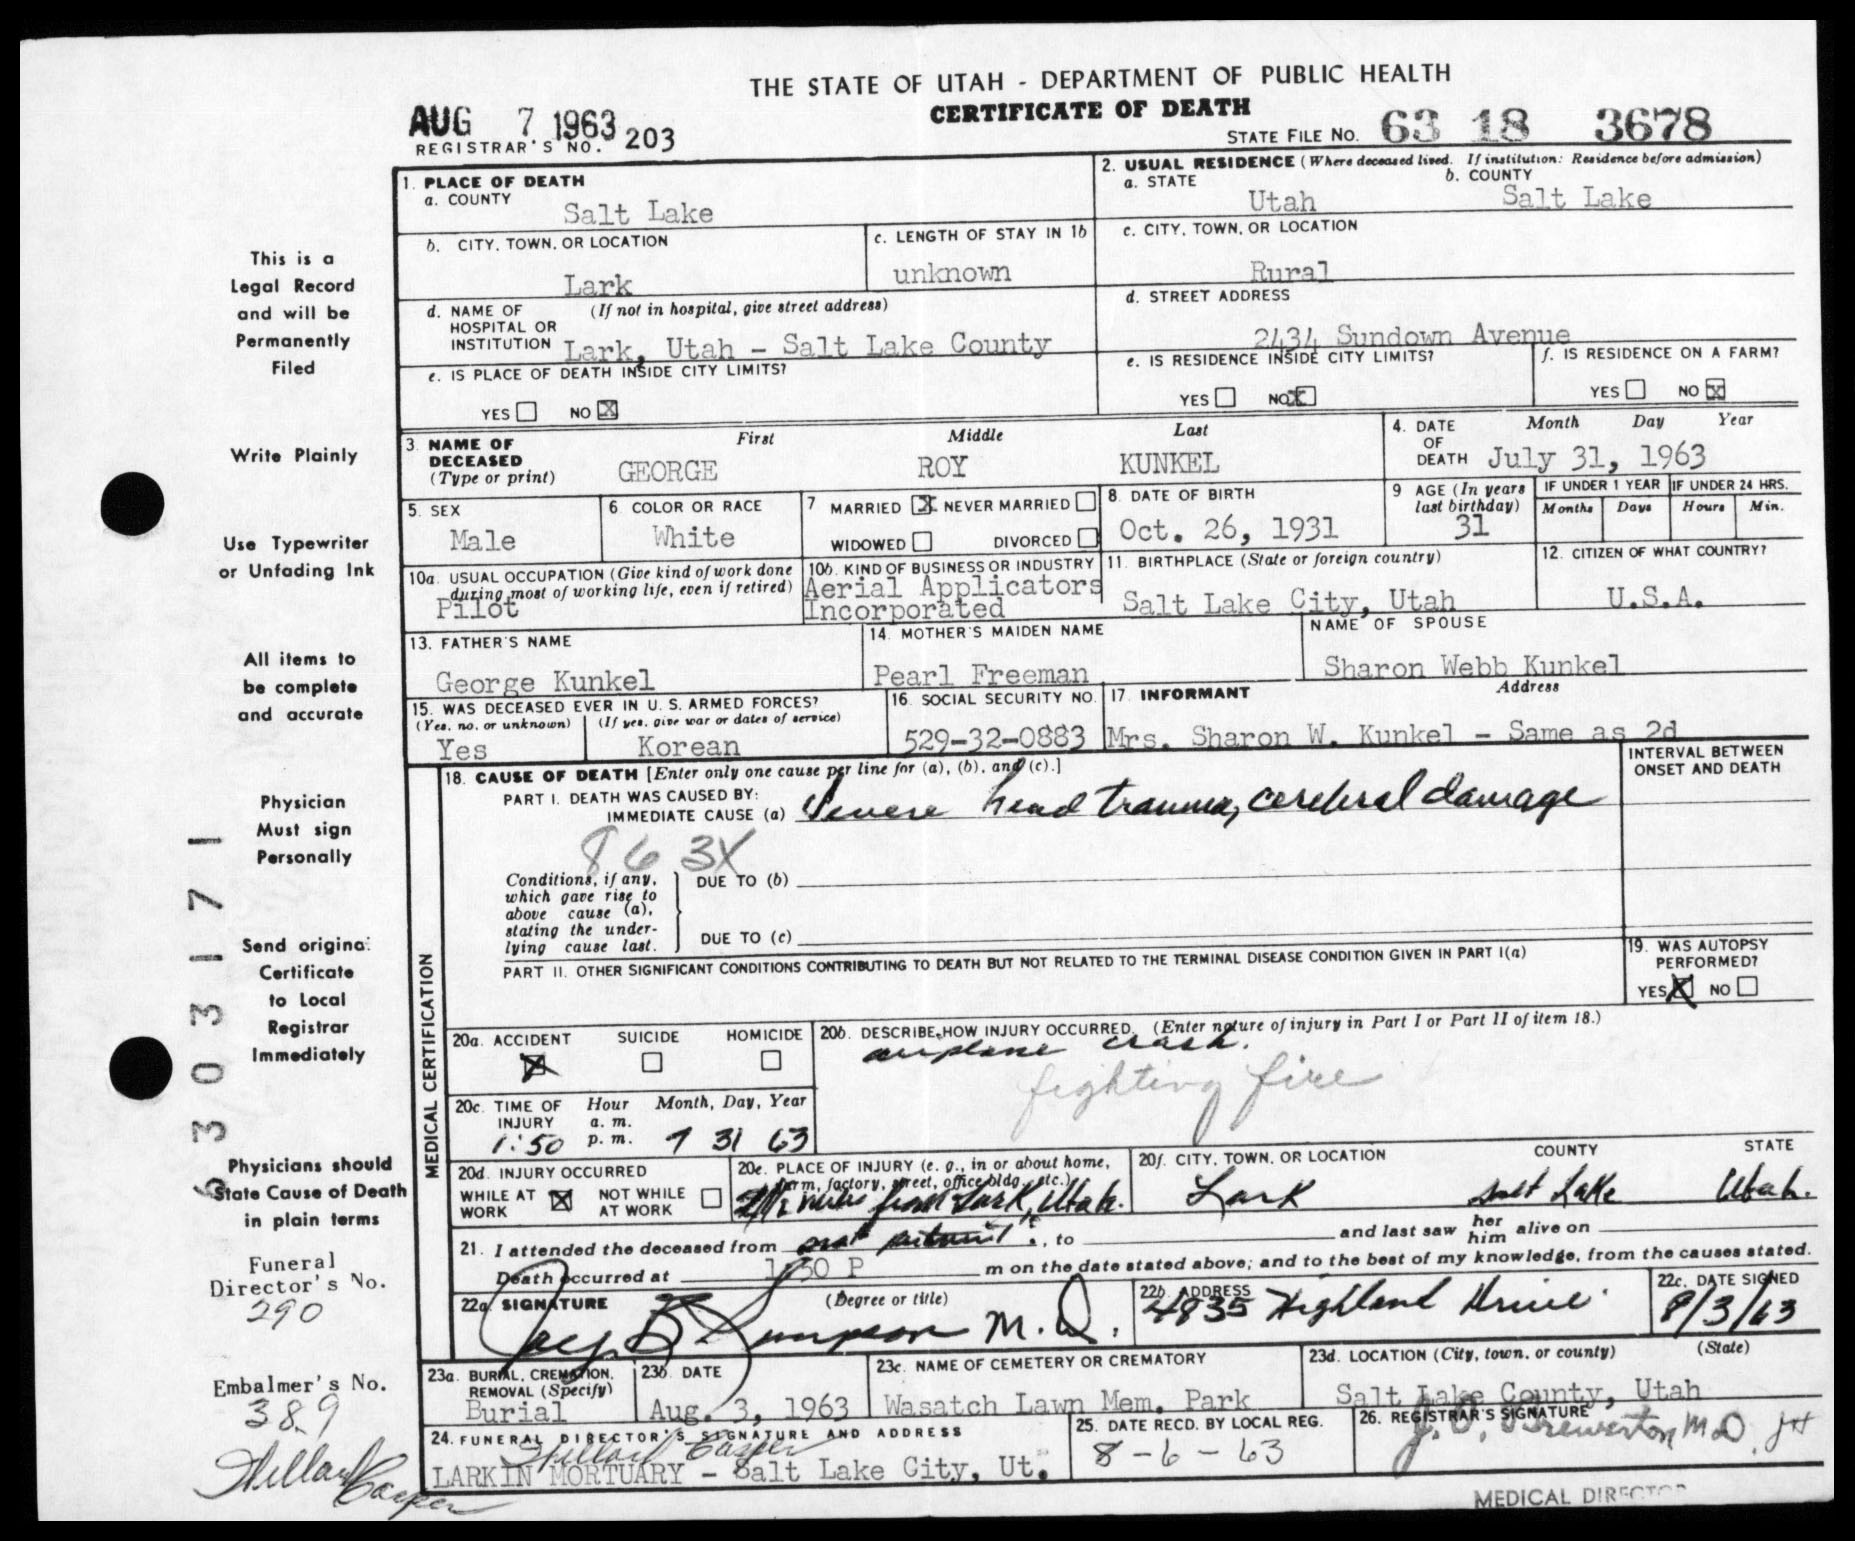 THE STATE OF UTAH - DEPARTMENT OF PUBLIC HEALTH
CERTIFICATE OF DEATH
AUG 7 1963
REGISTRAR'S NO. 203
STATE FILE NO. 63 18 3678
1. PLACE OF DEATH
a. COUNTY
Salt Lake
2. USUAL RESIDENCE (Where deceased lived. If institution: Residence before admission)
a. STATE
Utah
b. COUNTY
Salt Lake
b. CITY, TOWN, OR LOCATION
Lark
c. LENGTH OF STAY IN 1b
unknown
c. CITY, TOWN, OR LOCATION
Rural
d. NAME OF HOSPITAL OR INSTITUTION
(If not in hospital, give street address)
Lark, Utah - Salt Lake County
d. STREET ADDRESS
2434 Sundown Avenue
e. IS PLACE OF DEATH INSIDE CITY LIMITS?
YES NO X
e. IS RESIDENCE INSIDE CITY LIMITS?
YES NO X
f. IS RESIDENCE ON A FARM?
YES NO X
3. NAME OF DECEASED (Type or print)
First Middle Last
GEORGE ROY KUNKEL
4. DATE OF DEATH
Month Day Year
July 31, 1963
5. SEX
Male
6. COLOR OR RACE
White
7 MARRIED X NEVER MARRIED
WIDOWED DIVORCED
8. DATE OF BIRTH
Oct. 26, 1931
9 AGE (In years last birthday)
31
IF UNDER 1 YEAR
Months Days
IF UNDER 24 HRS.
Hours Min.
10a. USUAL OCCUPATION (Give kind of work done during most of working life, even if retired)
Pilot
10b. KIND OF BUSINESS OR INDUSTRY
Aerial Applicators
Incorporated
11. BIRTHPLACE (State or foreign country)
Salt Lake City, Utah
12. CITIZEN OF WHAT COUNTRY?
U.S.A.
13. FATHER'S NAME
George Kunkel
14. MOTHER'S MAIDEN NAME
Pearl Freeman
NAME OF SPOUSE
Sharon Webb Kunkel
15. WAS DECEASED EVER IN U. S. ARMED FORCES?
(Yes, no, or unknown) (If yes, give war or dates of service)
Yes Korean
16. SOCIAL SECURITY NO.
529-32-0883
17. INFORMANT Address
Mrs. Sharon W. Kunkel - Same as 2d
MEDICAL CERTIFICATION
18. CAUSE OF DEATH [Enter only one cause per line for (a), (b), and (c).]
INTERVAL BETWEEN ONSET AND DEATH
PART I. DEATH WAS CAUSED BY:
IMMEDIATE CAUSE (a) Severe head trauma, cerebral damage
863X
Conditions, if any, which gave rise to above cause (a), stating the underlying cause last.
DUE TO (b)
DUE TO (c)
PART II. OTHER SIGNIFICANT CONDITIONS CONTRIBUTING TO DEATH BUT NOT RELATED TO THE TERMINAL DISEASE CONDITION GIVEN IN PART I(a)
19. WAS AUTOPSY PERFORMED?
YES X NO
20a. ACCIDENT X SUICIDE HOMICIDE
20b. DESCRIBE HOW INJURY OCCURRED. (Enter nature of injury in Part I or Part II of item 18.)
airplane crash.
fighting fire
20c. TIME OF INJURY
Hour Month, Day, Year
a. m.
p. m.
1:50 7 31 63
20d. INJURY OCCURRED
WHILE AT WORK X NOT WHILE AT WORK
20e. PLACE OF INJURY (e. g., in or about home, farm, factory, street, office bldg., etc.)
2 1/2 miles from Lark, Utah.
20f. CITY, TOWN, OR LOCATION COUNTY STATE
Lark Salt Lake Utah.
21. I attended the deceased from , to and last saw her him alive on
Death occurred at 1:50 P m on the date stated above; and to the best of my knowledge, from the causes stated.
22a. SIGNATURE (Degree or title)
M.D.
22b. ADDRESS
4835 Highland Drive.
22c. DATE SIGNED
8/3/63
23a. BURIAL, CREMATION, REMOVAL (Specify)
Burial
23b. DATE
Aug. 3, 1963
23c. NAME OF CEMETERY OR CREMATORY
Wasatch Lawn Mem. Park
23d. LOCATION (City, town, or county) (State)
Salt Lake County, Utah
24. FUNERAL DIRECTOR'S SIGNATURE AND ADDRESS
LARKIN MORTUARY - Salt Lake City, Ut.
25. DATE RECD. BY LOCAL REG.
8-6-63
26. REGISTRAR'S SIGNATURE
Brewerton M.D.
MEDICAL DIRECTOR
This is a
Legal Record
and will be
Permanently
Filed
Write Plainly
Use Typewriter
or Unfading Ink
All items to
be complete
and accurate
Physician
Must sign
Personally
Send original
Certificate
to Local
Registrar
Immediately
Physicians should
State Cause of Death
in plain terms
Funeral
Director's No.
290
Embalmer's No.
389